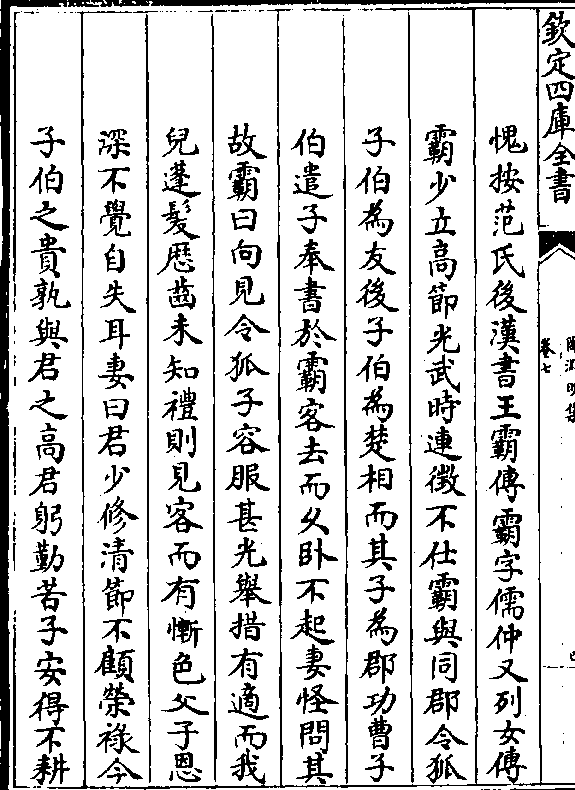 欽定四庫全書
卷七
愧按范氏後漢書王霸傳霸字儒仲又列女傳
霸少立高節光武時連徵不仕霸與同郡令狐
子伯為友後子伯為楚相而其子為郡功曹子
伯遣子奉書於霸客去而久卧不起妻怪問其
故霸曰向見令狐子容服甚光舉措有適而我
兒蓬髮厯齒未知禮則見客而有慚色父子恩
深不覺自失耳妻曰君少修清節不顧榮祿今
子伯之貴孰與君之高君躬勤苦子安得不耕